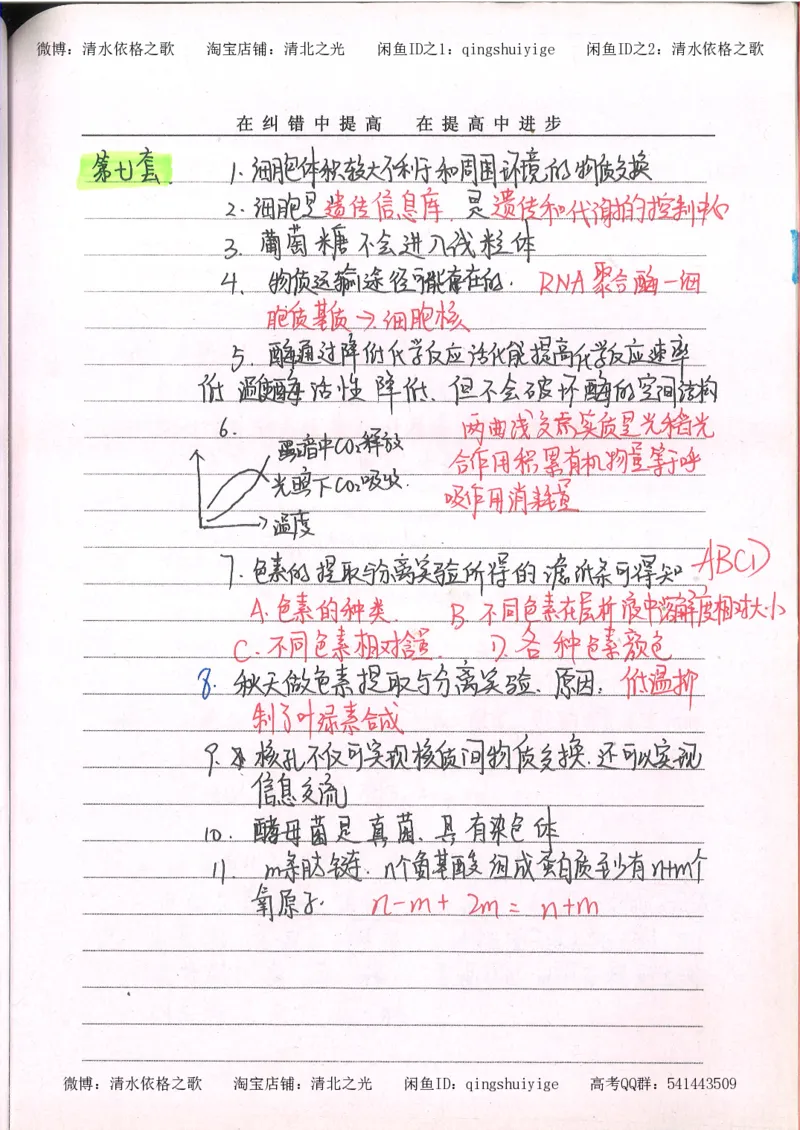 微博：清水依格之歌 淘宝店铺：清北之光 闲鱼ID之1：qingshuiyige 闲鱼ID之2：清水依格之歌
在纠错中提高 在提高中进步
第七套. 1. 细胞体积较大不利于和周围环境的物质交换
2. 细胞是遗传信息库. 是遗传和代谢的控制中心
3. 葡萄糖不会进入线粒体
4. 物质运输途径可能存在的. RNA聚合酶—细
胞质基质→细胞核
5. 酶通过降低化学反应活化能提高化学反应速率
低温酶活性降低. 但不会破坏酶的空间结构
6. 两曲线交点实质是光下光
黑暗中CO2释放
合作用积累有机物量等于呼
光照下CO2吸收.
吸作用消耗量
温度
7. 色素的提取与分离实验所得的滤纸条可得知 ABCD
A. 色素的种类. B. 不同色素在层析液中溶解度相对大小
C. 不同色素相对含量. D. 各种色素颜色
8. 秋天做色素提取与分离实验. 原因: 低温抑
制了叶绿素合成
9. 核孔不仅可实现核质间物质交换. 还可以实现
信息交流
10. 酵母菌是真菌. 具有染色体
11. m条肽链. n个氨基酸组成蛋白质至少有n+m个
氧原子. n-m+ 2m = n+m
微博：清水依格之歌 淘宝店铺：清北之光 闲鱼ID：qingshuiyige 高考QQ群：541443509